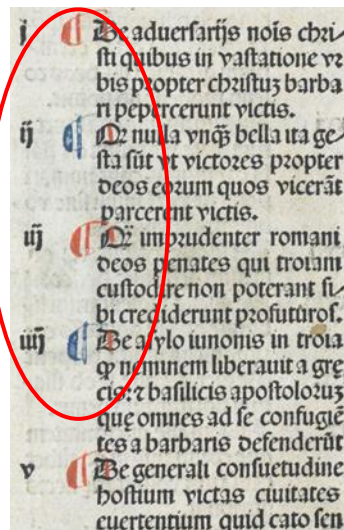 j De aduersarijs nois chri
sti quibus in vastatione vr
bis propter christuʒ barba
ri pepercerunt victis.
ij Qꝛ nulla vnq̄ʒ bella ita ge
sta sūt vt victores propter
deos eorum quos vicerāt
parcerent victis.
iij Qꝛ imprudenter romani
deos penates qui troiam
custodire non poterant si
bi crediderunt profuturos.
iiij De asylo iunonis in troia
ꝙ neminem liberauit a gre
cis: ⁊ basilicis apostoloruʒ
que omnes ad se confugiē
tes a barbaris defenderūt
v De generali consuetudine
hostium victas ciuitates
euertentium quid cato sen